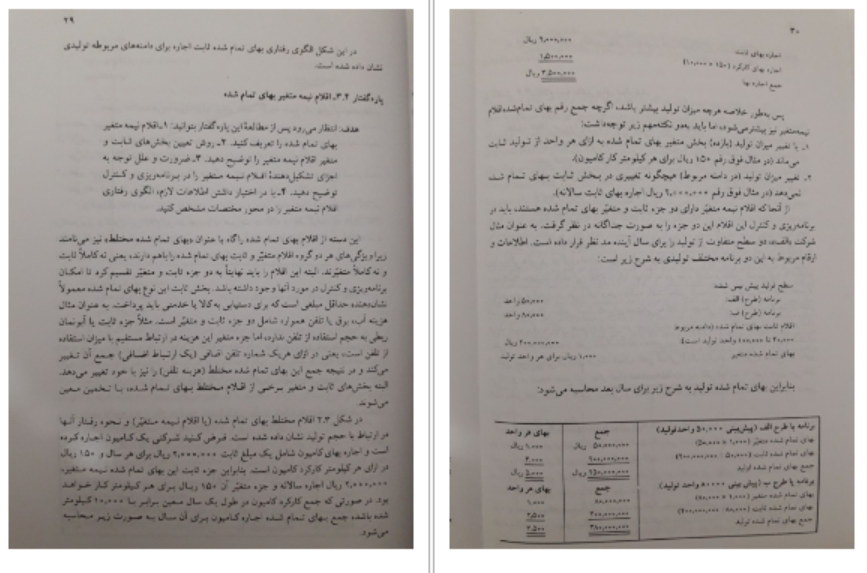 ۲۹
در این شکل الگوی رفتاری بهای تمام شده ثابت اجاره برای دامنه‌های مربوطه تولیدی
نشان داده شده است.
پاره‌گفتار ۳.۲. اقلام نیمه متغیر بهای تمام شده
هدف: انتظار می‌رود پس از مطالعهٔ این پاره‌گفتار بتوانید: ۱ـ اقلام نیمه متغیر
بهای تمام شده را تعریف کنید. ۲ـ روش تعیین بخش‌های ثابت و
متغیر اقلام نیمه متغیر را توضیح دهید. ۳ـ ضرورت و علل توجه به
اجزای تشکیل‌دهندهٔ اقلام نیمه متغیر را در برنامه‌ریزی و کنترل
توضیح دهید. ۴ـ با در اختیار داشتن اطلاعات لازم، الگوی رفتاری
اقلام نیمه متغیر را در محور مختصات مشخص کنید.
این دسته از اقلام بهای تمام شده را گاه با عنوان «بهای تمام شده مختلط» نیز می‌نامند
زیرا ویژگی‌های هر دو گروه اقلام متغیّر و ثابت بهای تمام شده را باهم دارند، یعنی نه کاملاً ثابت
و نه کاملاً متغیّرند. البته این اقلام را باید نهایتاً به دو جزء ثابت و متغیّر تقسیم کرد تا امکان
برنامه‌ریزی و کنترل در مورد آنها وجود داشته باشد. بخش ثابت این نوع بهای تمام شده معمولاً
نشان‌دهنده حداقل مبلغی است که برای دستیابی به کالا یا خدمتی باید پرداخت. به عنوان مثال
هزینه آب، برق یا تلفن همواره شامل دو جزء ثابت و متغیّر است. مثلاً جزء ثابت یا آبونمان
ربطی به حجم استفاده از تلفن ندارد، اما جزء متغیر این هزینه در ارتباط مستقیم با میزان استفاده
از تلفن است، یعنی در ازای هر یک شماره تلفن اضافی (یک ارتباط اضافی) جمع آن تغییر
می‌کند و در نتیجه جمع این بهای تمام شده مختلط (هزینه تلفن) را نیز با خود تغییر می‌دهد.
البته بخش‌های ثابت و متغیر برخی از اقلام مختلط بهای تمام شده، با تخمین معین
می‌شوند.
در شکل ۲.۳ اقلام مختلط بهای تمام شده (یا اقلام نیمه متغیّر) و نحوه رفتار آنها
در ارتباط با حجم تولید نشان داده شده است. فرض کنید شرکتی یک کامیون اجاره کرده
است و اجاره بهای کامیون شامل یک مبلغ ثابت ۲,۰۰۰,۰۰۰ ریال برای هر سال و ۱۵۰ ریال
در ازای هر کیلومتر کارکرد کامیون است. بنابراین جزء ثابت این بهای تمام شده نیمه متغیر،
۲,۰۰۰,۰۰۰ ریال اجاره سالانه و جزء متغیّر آن ۱۵۰ ریال برای هر کیلومتر کار خواهد
بود. در صورتی که جمع کارکرد کامیون در طول یک سال معین برابر با ۱۰,۰۰۰ کیلومتر
شده باشد، جمع بهای تمام شده اجاره کامیون برای آن سال به صورت زیر محاسبه
می‌شود.
۳۰
اجاره بهای ثابت ۲,۰۰۰,۰۰۰ ریال
اجاره بهای کارکرد (۱۵۰ × ۱۰,۰۰۰) ۱,۵۰۰,۰۰۰
جمع اجاره بها ۳,۵۰۰,۰۰۰ ریال
پس به‌طور خلاصه هرچه میزان تولید بیشتر باشد، اگرچه جمع رقم بهای تمام‌شده اقلام
نیمه‌متغیر نیز بیشتر می‌شود، اما باید به‌دو نکته مهم زیر توجه داشت:
۱ـ با تغییر میزان تولید (بازده) بخش متغیر بهای تمام شده به ازای هر واحد از تولید ثابت
می‌ماند (در مثال فوق رقم ۱۵۰ ریال برای هر کیلومتر کار کامیون).
۲ـ تغییر میزان تولید (در دامنه مربوط) هیچگونه تغییری در بخش ثابت بهای تمام شده
نمی‌دهد (در مثال فوق رقم ۲,۰۰۰,۰۰۰ ریال اجاره بهای ثابت سالانه).
از آنجا که اقلام نیمه متغیّر دارای دو جزء ثابت و متغیّر بهای تمام شده هستند، باید در
برنامه‌ریزی و کنترل این اقلام این دو جزء را به صورت جداگانه در نظر گرفت. به عنوان مثال
شرکت «الف»، دو سطح متفاوت از تولید را برای سال آینده مد نظر قرار داده است. اطلاعات و
ارقام مربوط به این دو برنامه مختلف تولیدی به شرح زیر است:
سطح تولید پیش بینی شده:
برنامه (طرح) الف: ۵۰,۰۰۰ واحد
برنامه (طرح) ب: ۸۰,۰۰۰ واحد
اقلام ثابت بهای تمام شده (دامنه مربوط
۲۰,۰۰۰ تا ۱۰۰,۰۰۰ واحد تولید است) ۲۰۰,۰۰۰,۰۰۰ ریال
بهای تمام شده متغیر ۱,۰۰۰ ریال برای هر واحد تولید
بنابراین بهای تمام شده تولید به شرح زیر برای سال بعد محاسبه می‌شود:
برنامه یا طرح الف (پیش‌بینی ۵۰,۰۰۰ واحد تولید) جمع بهای هر واحد
بهای تمام شده متغیّر (۱,۰۰۰ × ۵۰,۰۰۰) ۵۰,۰۰۰,۰۰۰ ریال ۱,۰۰۰ ریال
جمع بهای تمام شده تولید
برنامه یا طرح ب (پیش بینی ۸۰,۰۰۰ واحد تولید) جمع بهای هر واحد
بهای تمام شده متغیر (۱,۰۰۰ × ۸۰,۰۰۰) ۸۰,۰۰۰,۰۰۰ ۱,۰۰۰
جمع بهای تمام شده تولید ۳,۵۰۰